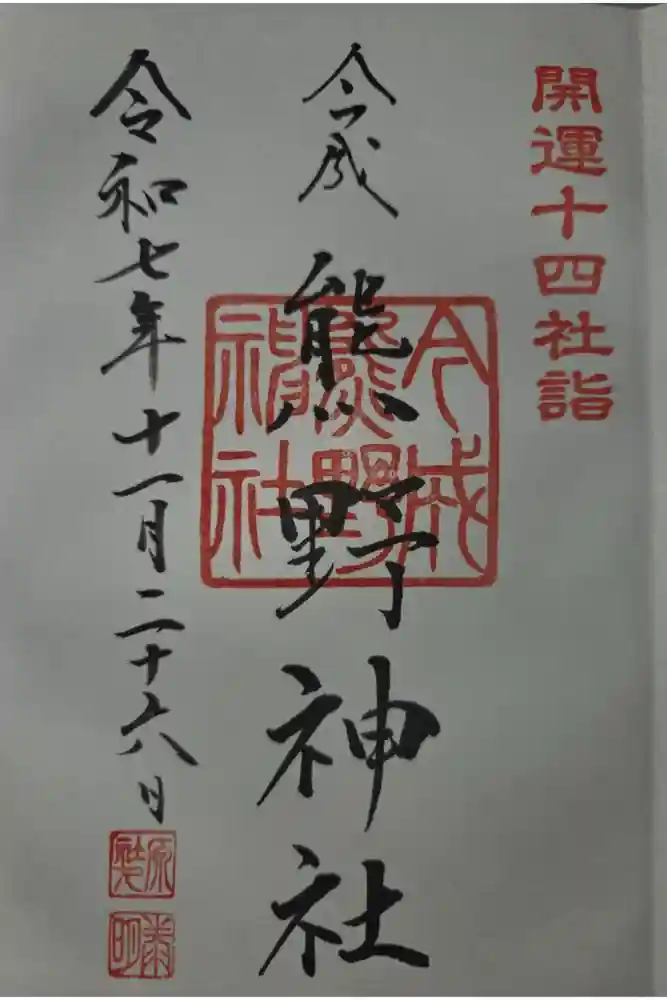 開運十四社詣
今成 熊野神社
今成熊野神社
令和七年十一月二十六日